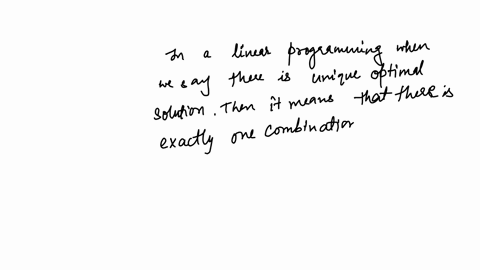 In a linear programming when
we say there is unique optimal
solution. Then it means that there is
exactly one combination